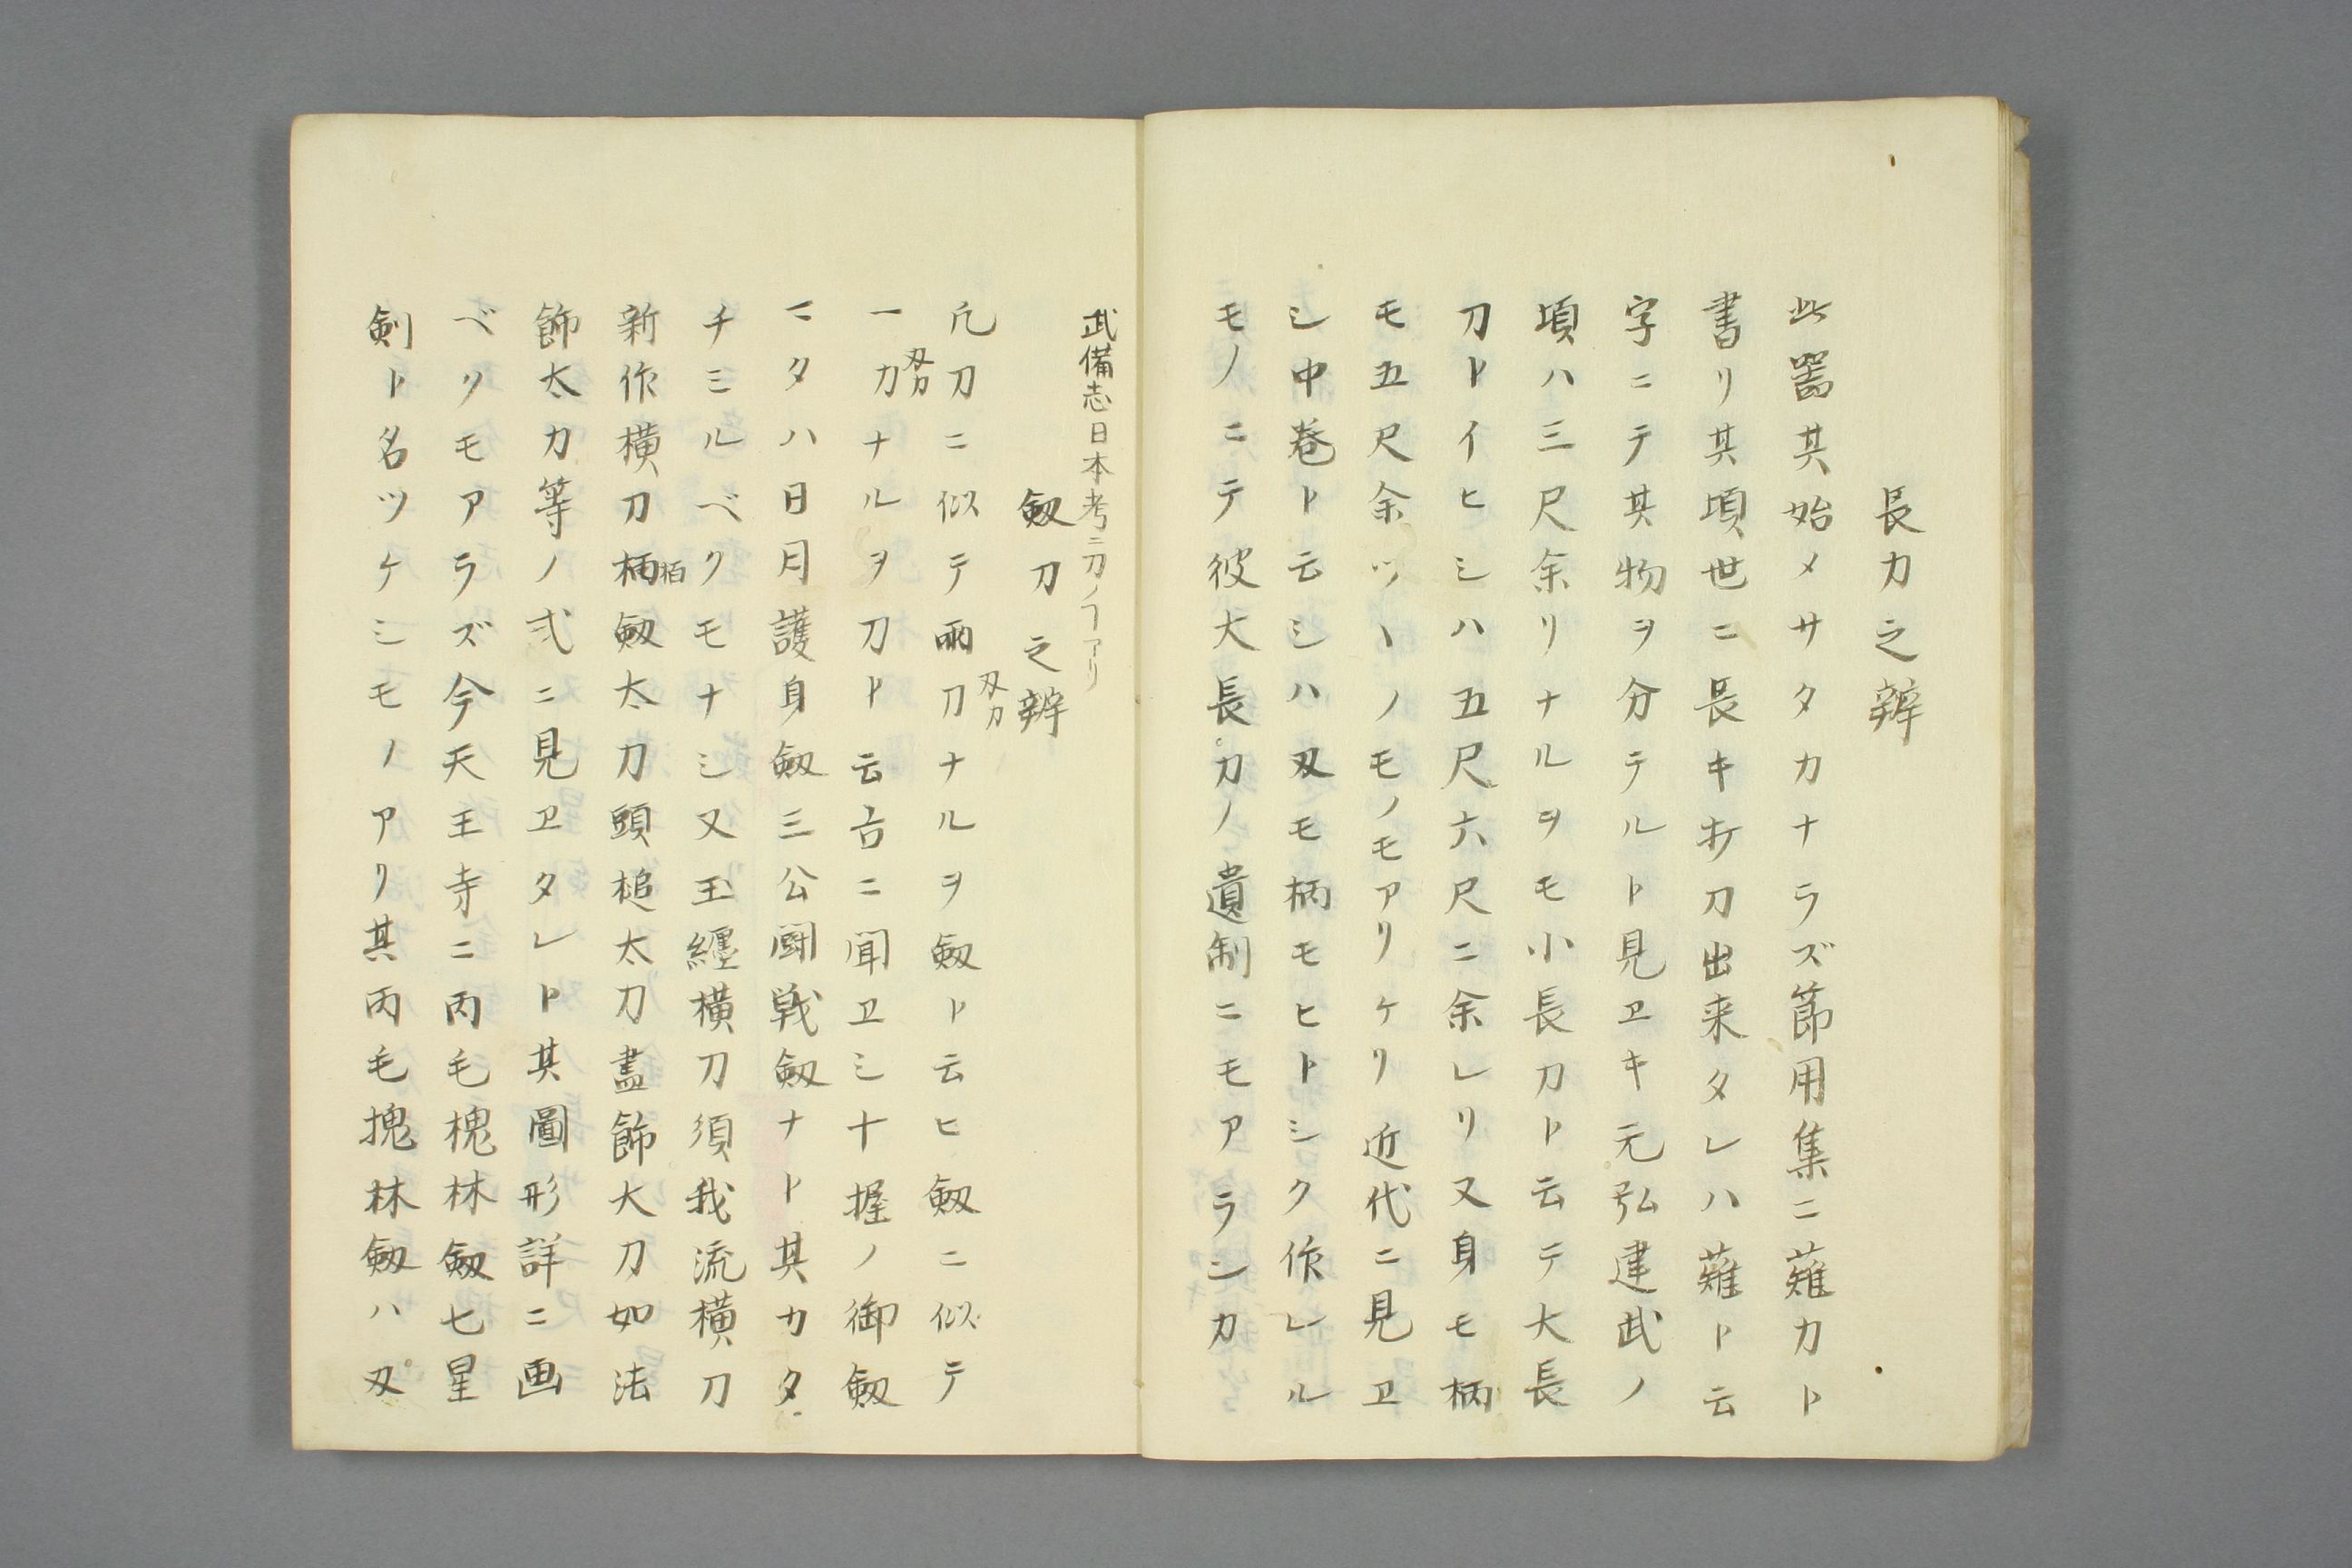 長刀之辨
此噐其始メサタカナラズ節用集ニ薙刀ト
書リ其頃世ニ長キ打刀出来タレハ薙ト云
字ニテ其物ヲ分テルト見ヱキ元弘建武ノ
頃ハ三尺余リナルヲモ小長刀ト云テ大長
刀トイヒシハ五尺六尺ニ余レリ又身モ柄
モ五尺余ツヽノモノモアリケリ近代ニ見ヱ
シ中巻ト云シハ刄モ柄モヒトシク作レル
モノニテ彼大長刀ノ遺制ニモアラシカ
武備志日本考ニ刀ノヿアリ
劔刀之辨
凢刀ニ似テ兩刀ナルヲ劔ト云ヒ劔ニ似テ
刄刕
一刀ナルヲ刀ト云古ニ聞ヱシ十握ノ御劔
刄刕
マタハ日月護身劔三公闘戦劔ナト其カタ
チミルベクモナシ又玉纒横刀須我流横刀
新作横刀柄劔太刀頭槌太刀盡飾大刀如法
栢
飾太刀等ノ弍ニ見ヱタレト其圖形詳ニ画
ベリモアラズ今天王寺ニ丙毛槐林劔七星
剣ト名ツケシモノアリ其丙毛槐林劔ハ刄